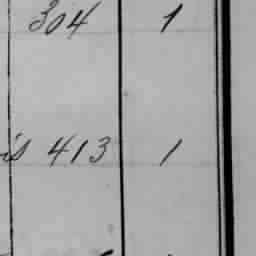 304 1
is 413 1